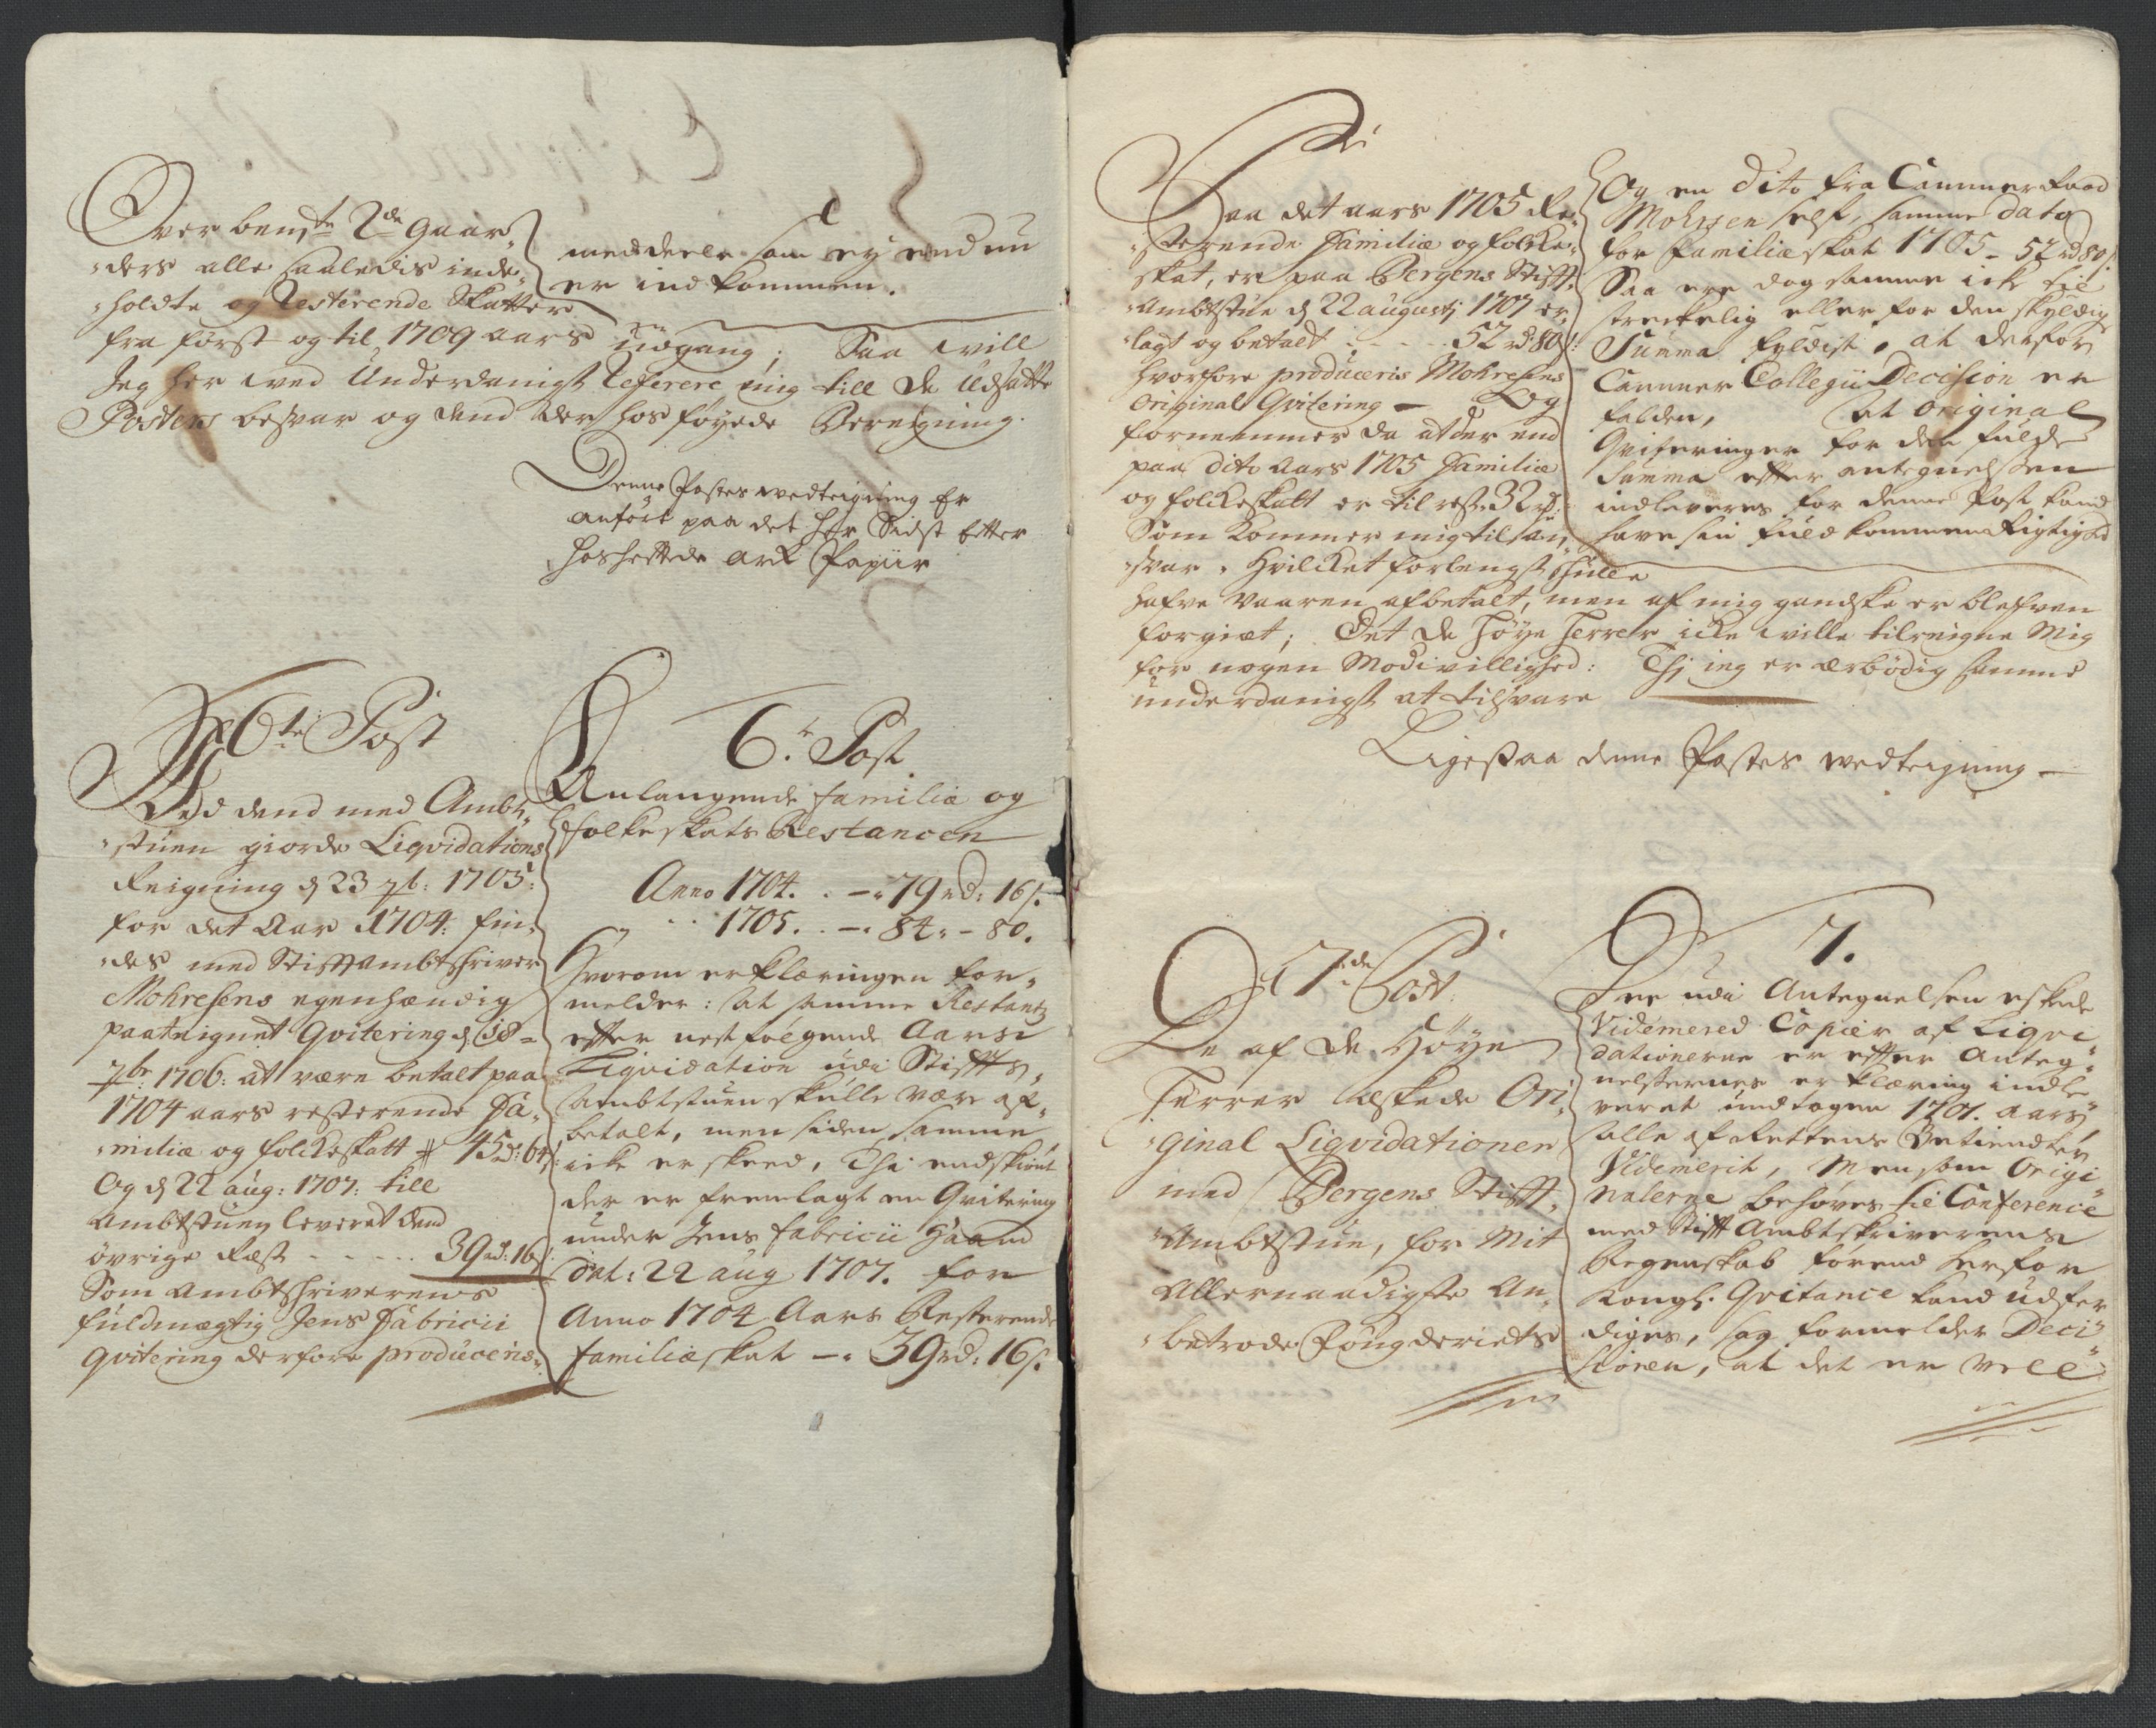 Over bem:te 2de gaar-
ders alle saaledis inde-
holdte og Resterende Skatter
fra først og til 1709 aars udgang; Saa will
Jeg her wed Underdanigst referere mig till de udsatte
Posters besvar og dend der hos føyede Beregning.
meddeele som ey end nu
er indkommen.
Denne Postes wedteigning Er
anført paa det her Sidst efter
hoshefftede ark Papiir
6te Post
Ved dend med Ambt-
stuen giorde Liqvidations
Reigning d 23 7b: 1705:
for det Aar 1704: fin-
des med Stifftambtskriver
Mohresens egenhændig
paateignet Qvitering d 18
7br: 1706: at være betalt paa
1704 aars resterende Fa-
milie og folcheskatt # 45d: 64s:
Og d 22 aug: 1707: till
Ambtstuen leveret dend
øvrige Rest ..... 39rd: 16s
Som Ambtskriverens
fuldmægtig Jens Fabricii
qvitering derfore produceris
6te Post
Anlangende familie og
folkeskats Restancen
Anno 1704. . - 79rd: 16s.
" 1705. . - 84 - 80.
Hvorom erklæringen for-
melder: at samme Restantz
efter nest følgende Aars
Liqvidation udi Stiffts
Ambtstuen skulle være af-
betalt, men siden samme
icke er skeed, Thi endskiønt
der er fremlagt en Qvitering
under Jens Fabricii Haand
dat: 22 aug 1707. for
Anno 1704 Aars Resterende
familieskat - 39rd: 16s.
Paa det aars 1705 Re-
sterende Familie og folcke-
skat, er paa Bergens Stifft-
Ambtstue d 22 augustj 1707 er-
lagt og betalt ..... 52rd 80s:
hvorfore produceris Mohresens
Original Qvitering - Og
fornemmer da at der end
paa dito Aars 1705 Familie
og folckeskatt er til rest 32rd:
Som kommer mig til an-
svar. Hvilcket forlengst skulle
hafve vaaren afbetalt, men af mig gandske er blefven
forgiæt; Det de Høye Herrer icke wille tilreigne Mig
for nogen Modvillighed: Thj ieg er ærbødig samme
underdanigst at tilsvare
Og en dito fra Cammerraad
Mohrsen self, samme dato
for familieskat 1705 - 52rd 80s.
Saa ere dog samme ick til
streckelig eller for den skyldig
Summa fyldist, at derfor
Cammer Collegii Decision er
falden, at original
Qviteringer for den fulde
Summa efter antegnelsen
indleveres for denne Post kand
have sin fuld kommen Rigtighed
Ligesaa denne Postes wedteigning -
7de Post
De af de Høye
Herrer æskede Ori-
ginal Liqvidationer
med Bergens Stifft-
Ambtstue, for Mit
Allernaadigste An-
betrode Fougderiets
7.
De udi Antegnelsen eskede
Videmered Copier af Liqvi
dationerne er efter Anteg-
nelsernes erklæring indle
veret undtagen 1701. aars,
alle af Rettens Betiendter
Videmerit, Men som Origi
nalerne behøves til Conference
med Stifft Ambtskriverens
Regenskab førend herfor
Kongl. Qvitance kand udfer
diges, saa formelder Deci
sionen, at det er vell